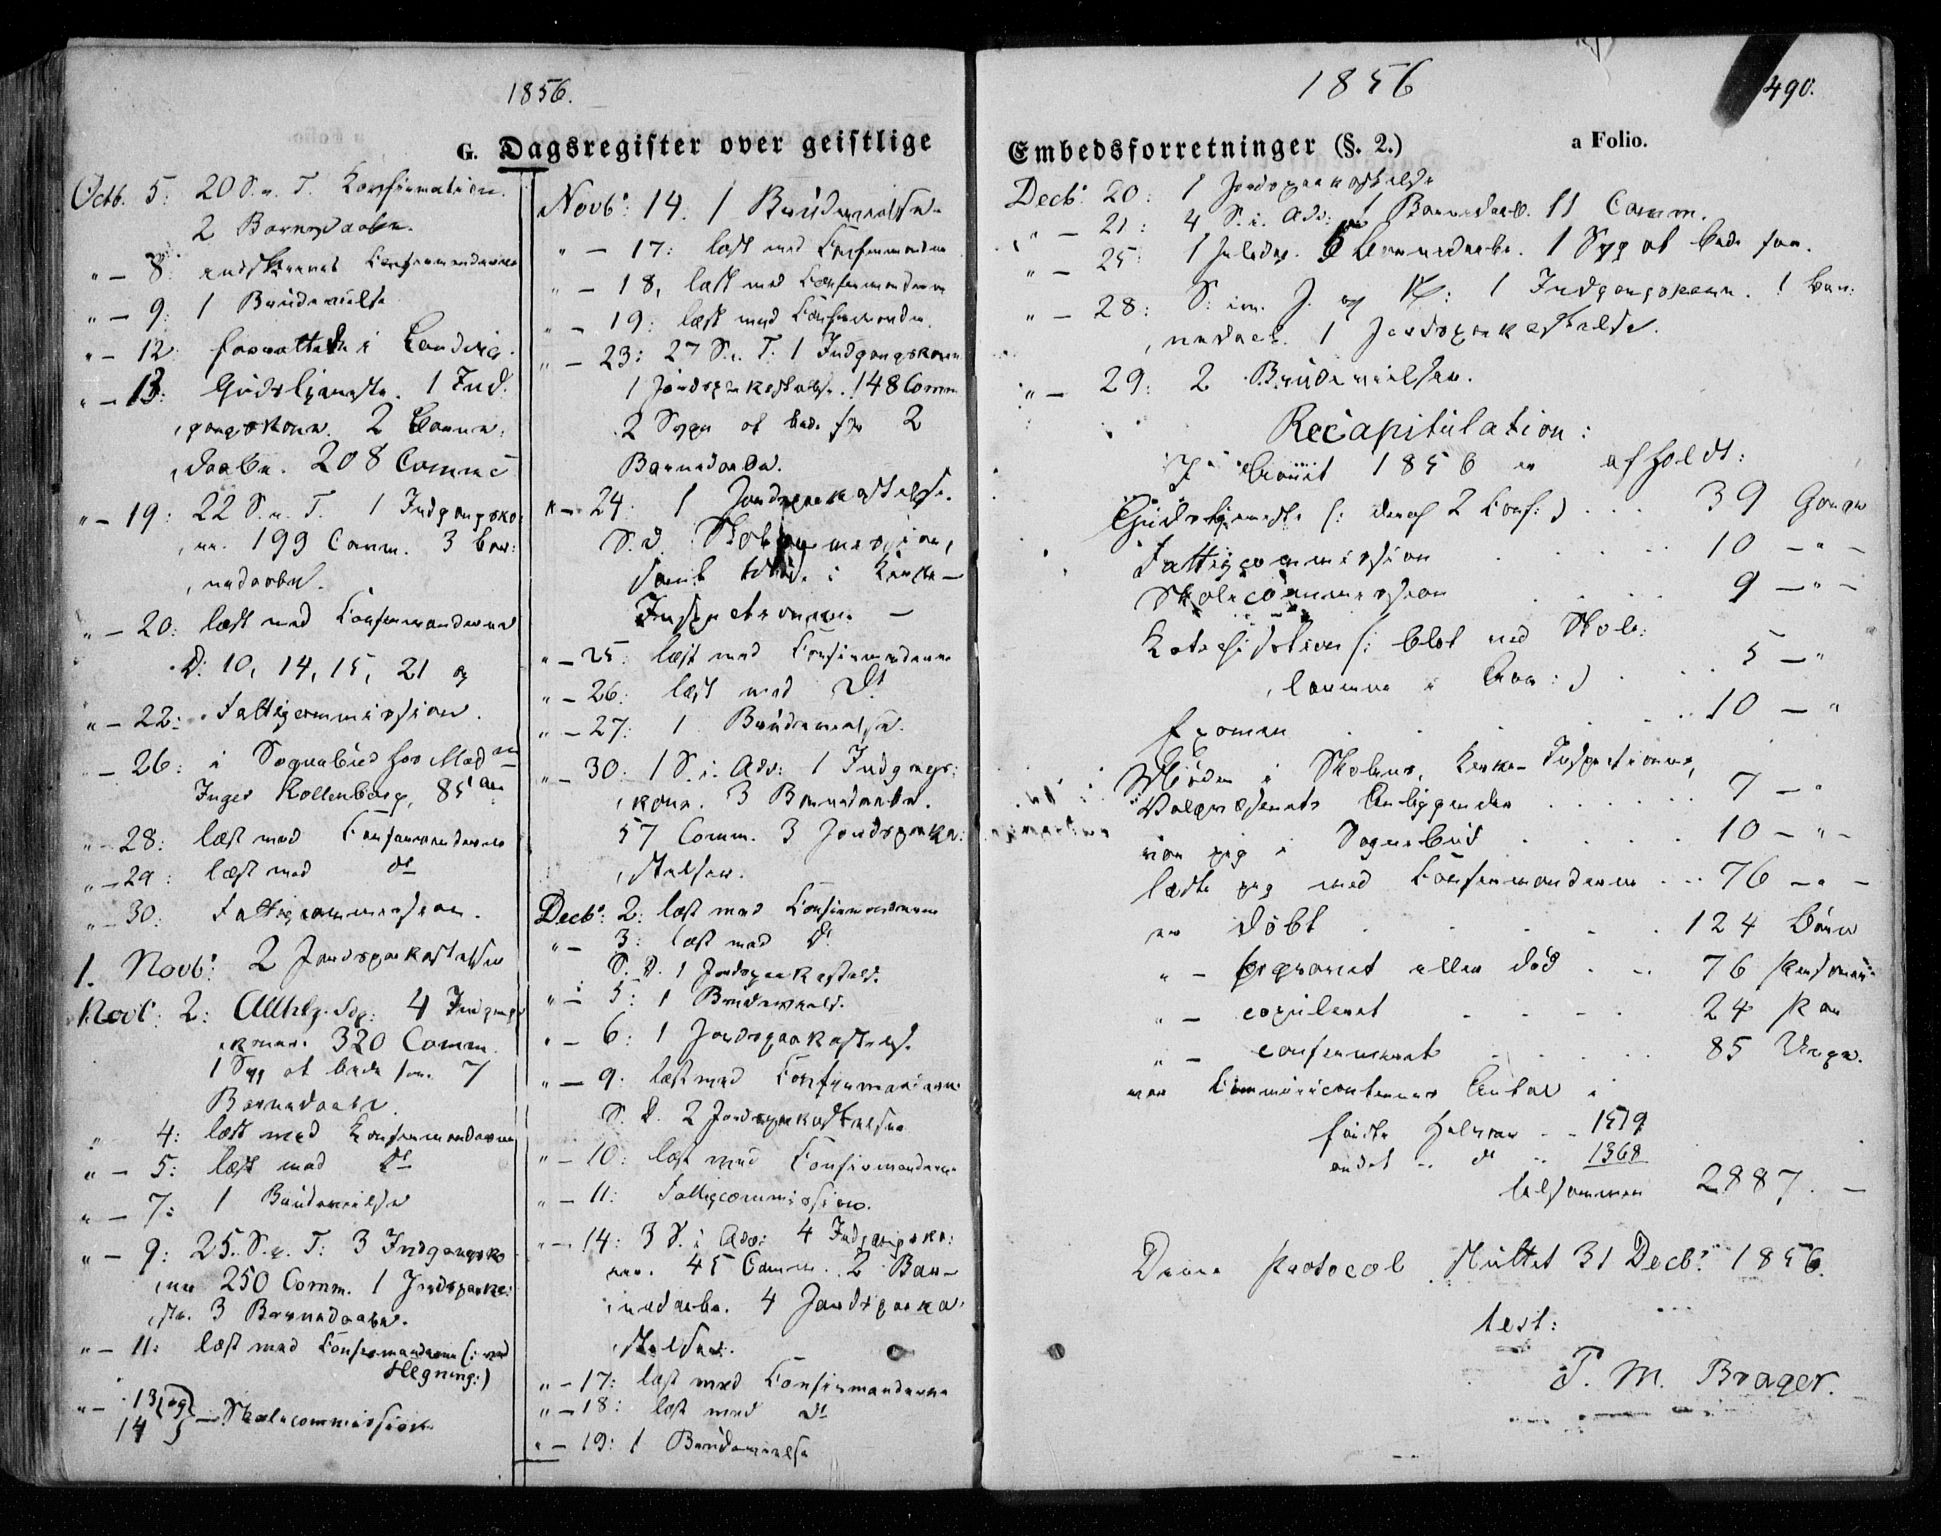 1856.
G. Dagsregister over geistlige
Octb. 5: 20 S. e. T. Konfirmation.
2 Barnedaabe.
" — 8: Confirmanderne
" — 9: 1 Brudevielse
" — 12:
" — 13: Gudstjeneste. 1 Ind-
gangskone. 2 Barne-
daabe. 208 Comm:
" — 19: 22 S. e. T. 1 Indgangsko-
ne. 199 Comm. 3 Bar-
nedaabe.
" — 20: læst med Confirmanderne
D: 10, 14, 15, 21 og
" — 22: Fattigcommission.
" — 26: i Sognebud hos Mad
Inger Kollenborg, 85 Aar
" — 28: læst med Confirmanderne
" — 29: læst med do
" — 30: Fattigcommission.
1. Novb: 2 Jordspaakastelser
Novb: 2: Allhlg. Dg: 4 Indgangs-
koner. 320 Comm.
1 Syg at bede for. 7
Barnedaabe.
" 4: læst med Konfirmanderne
" — 5: læst med do
" — 7: 1 Brudevielse
" — 9: 25. S. e. T: 3 Indgangsko-
ner 250 Comm. 1 Jordspaaka-
st. 3 Barnedaabe.
" — 11: læst med Confirmanderne (: ved
Hegning:)
" — 13 og
14 } — Skolecommission
Novb: 14. 1 Brudevielse.
" — 17: læst med Confirmanderne
" — 18, læst med Confirmanderne
" — 19: læst med Confirmanderne.
" — 23: 27 S. e. T: 1 Indgangskone
1 Jordspaakastelse. 148 Comm.
2 Syge at bede for 2
Barnedaabe.
" — 24: 1 Jordspaakastelse.
S. D. Skolecommission,
samt Møde i Kirke-
Inspectionen. —
" — 25: læst med Confirmanderne
" — 26: læst med Do
" — 27: 1 Brudevielse.
" — 30: 1 S. i. Adv: 1 Indgangs-
kone. 3 Barnedaabe.
57 Comm. 3 Jordspaaka-
stelser.
Decb: 2: læst med Confirmanderne
" — 3: læst med Do
S. D. 1 Jordspaakastelse.
" — 5: 1 Brudevielse.
" — 6: 1 Jordspaakastelse.
" — 9: læst med Confirmanderne
S. D. 2 Jordspaakastelser
" — 10: læst med Confirmanderne
" — 11: Fattigcommission.
" — 14: 3 S. i Adv: 4 Indgangsko-
ner. 45 Comm. 2 Bar-
nedaabe. 4 Jordspaaka-
stelser.
" — 17: læst med Confirmanderne
" — 18: læst med do
" — 19: 1 Brudevielse
1856
490.
Embedsforretninger (§. 2.)
a Folio.
Decb: 20: 1 Jordspaakastelse
" — 21: 4 S. i. Adv: 1 Barnedaab. 11 Comm.
" — 25: 1 Juledag. 6 Barnedaabe. 1 Syg at bede for.
" — 28: S: im. J. og N: 1 Indgangskone. 1 Bar-
nedaab. 1 Jordspaakastelse.
" — 29: 2 Brudevielser.
Recapitulation:
I 1856 er afholdt:
Gudstjeneste (: deraf 2 Conf:) . . . 39 Gange
Fattigcommission . . . 10 — " —
Skolecommission . . . 9 — " —
Katechisation (: blot med Skole-
børnene :) . . . 5 — "
Examen . . . 10 — "
Møder i Skolens, Kirke-Inspectionens,
Valgvæsenets Anliggender . . . 7 — "
var jeg i Sognebud . . . 10 — " —
læste jeg med Confirmanderne . . . 76 — " —
er døbt . . . 124 Børn
" — begravet eller død . . . 76 Personer
" — copuleret . . . 24 Par
" — confirmeret . . . 85 Unge.
var Communicanternes Antal i
første Halvaar . . 1519
andet " do " 1368
tilsammen 2887. —
Denne Protocol sluttet 31 Decb: 1856.
test:
P. M. Brager.